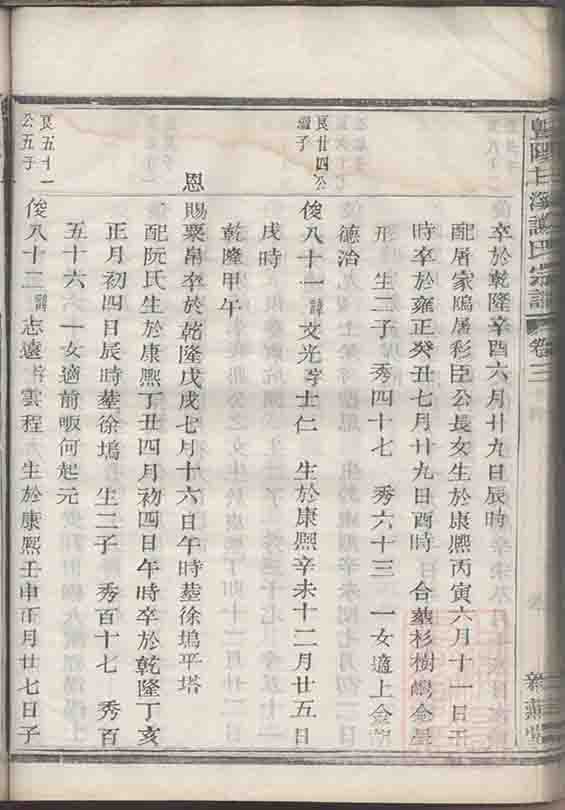 暨陽 溪 氏宗譜 卷三
卒於乾隆辛酉六月廿九日辰時
配屠家塢屠彩臣公長女生於康熙丙寅六月十一日 
時卒於雍正癸丑七月廿九日酉時 合墓杉樹 金星
形 生二子 秀四十七 秀六十三 一女適上金 
德治
艮廿四公
繼子
俊八十一 諱文光字士仁 生於康熙辛未十二月廿五日
戌時
乾隆甲午
恩
賜粟帛卒於乾隆戊戌七月十六日午時墓徐塢平塔
配阮氏生於康熙丁丑四月初四日午時卒於乾隆丁亥
正月初四日辰時墓徐塢 生二子 秀百十七 秀百
五十六 一女適前畈何起元
艮五十一
公五子
俊八十三 諱志遠字雲程 生於康熙壬申正月廿七日子